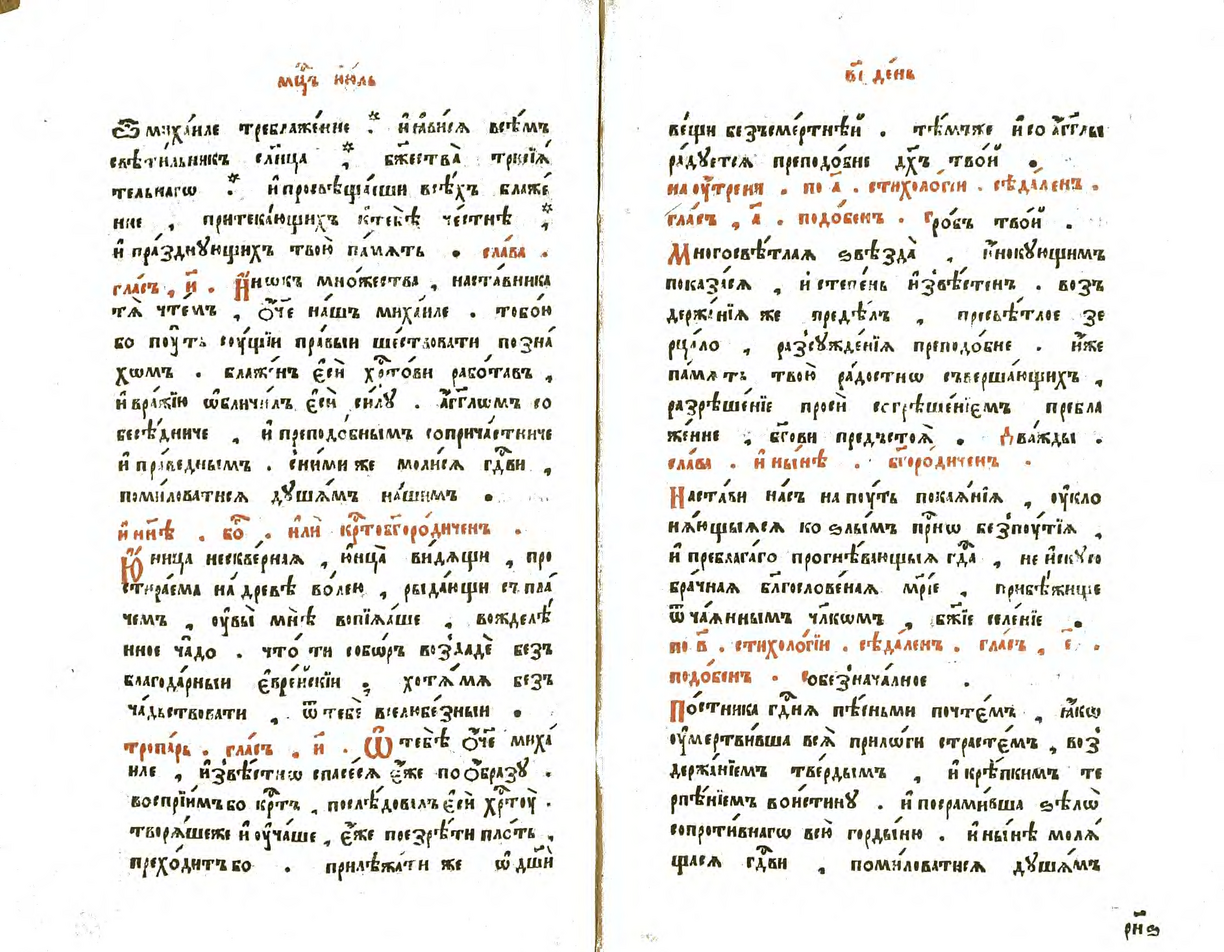 мⷭ҇цъ і҆ю́ль
ѿ михаи́ле треблаже́нне . и҆ ꙗ҆ви́сѧ всѣ́мъ
свѣти́льникъ сл҃нца , бж҃ества̀ трисїѧ́
тельнагѡ . и҆ просвѣща́еши всѣ́хъ блаже́
нне , притека́ющихъ к тебѣ̀ че́стнѣ ,
и҆ пра́зднꙋющихъ твою̀ па́мѧть . сла́ва .
гла́съ , и҃ . И҆́нѡкъ мно́жества , наста́вника
тѧ̀ чте́мъ , ѻ҆́ч҃е на́шъ михаи́ле . тобо́ю
бо пꙋ́ть сꙋ́щїи пра́выи ше́ствовати позна́
хомъ . блаже́нъ є҆сѝ хрⷭ҇то́ви рабо́тавъ ,
и҆ вра́жїю ѡ҆бличи́лъ є҆сѝ си́лꙋ . а҆́гг҃лѡмъ со
бесѣ́дниче , и҆ преподо́бнымъ соприча́стниче
и҆ пра́веднымъ . с ни́ми же моли́сѧ гдⷭ҇ви ,
поми́ловатисѧ дꙋша́мъ на́шимъ .
и҆ нн҃ѣ . бо҃ . и҆лѝ крⷭ҇тобг҃оро́диченъ .
Ю҆́ница нескве́рнаѧ , ю҆нца̀ ви́дѧщи , про
стира́ема на дре́вѣ во́лею , рыда́ющи съ пла́
чемъ , ᲂу҆вы̀ мнѣ̀ вопїѧ́ше , вожделѣ́
нное ча́до . что́ ти собо́ръ возда́де без̾
благода́рныи є҆вре́йскїи ; хотѧ́ мѧ без̾
ча́дьствовати , ѿ тебѐ вселюбе́зныи .
тропа́рь . гла́съ , и҃ . Ѿ тебѣ̀ ѻ҆́ч҃е миха
и́ле , и҆звѣ́стнѡ спасе́сѧ є҆́же по ѻ҆́бразꙋ .
воспрїи́мъ бо крⷭ҇тъ , послѣ́довалъ є҆сѝ хрⷭ҇тꙋ̀ .
творѧ́ше же и҆ ᲂу҆ча́ше , є҆́же презрѣ́ти пло́ть ,
прехо́дитъ бо . прилѣжа́ти же ѡ҆ дш҃ѝ
в҃і де́нь
ве́щи безсме́ртнѣй . тѣ́мже и҆ со а҆́гг҃лы
ра́дꙋетсѧ преподо́бне дх҃ъ тво́й .
на ᲂу҆́трени . по а҃ . стихоло́гїи . сѣда́ленъ .
гла́съ , а҃ . подо́бенъ . Гро́бъ тво́й .
Многосвѣ́тлаѧ ѕвѣзда̀ , и҆́нокꙋющимъ
показа́сѧ , и҆ сте́пень и҆звѣ́стенъ . воз̾
держа́нїѧ же предѣ́лъ , пресвѣ́тлое зе
рца́ло , разсꙋжде́нїѧ преподо́бне . и҆́же
па́мѧть твою̀ ра́достнѡ съверша́ющихъ ,
разрѣше́нїе просѝ согрѣше́нїемъ пребла
же́нне , бг҃ови предъстоѧ̀ . Два́жды .
сла́ва . и҆ ны́нѣ . бг҃оро́диченъ .
Наста́ви на́съ на пꙋ́ть покаѧ́нїѧ , ᲂу҆кло
нѧ́ющыѧсѧ ко ѕлы́мъ при́снѡ безпꙋ́тїѧ ,
и҆ преблага́го прогнѣ́вающыѧ гдⷭ҇а , не и҆скꙋсо
бра́чнаѧ блг҃ослове́наѧ мр҃і́е , прибѣ́жище
ѿча́ѧннымъ чл҃кѡмъ , бж҃їе селе́нїе .
по в҃ . стихоло́гїи . сѣда́ленъ . гла́съ , є҃ .
подо́бенъ . Собезнача́лное .
По́стника гдⷭ҇нѧ пѣ́сньми почте́мъ , ꙗ҆́кѡ
ᲂу҆мертви́вша всѧ̀ прило́ги страсте́мъ , воз̾
держа́нїемъ тве́рдымъ , и҆ крѣ́пкимъ те
рпѣ́нїемъ вои́стинꙋ . и҆ посрами́вша ѕѣлѡ̀
сопроти́внагѡ всю̀ горды́ню . и҆ ны́нѣ молѧ́
щасѧ гдⷭ҇ви , поми́ловатисѧ дꙋша́мъ
рн҃ѕ